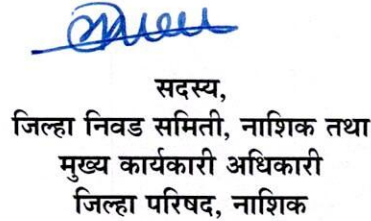 सदस्य,
जिल्हा निवड समिती, नाशिक तथा
मुख्य कार्यकारी अधिकारी
जिल्हा परिषद, नाशिक